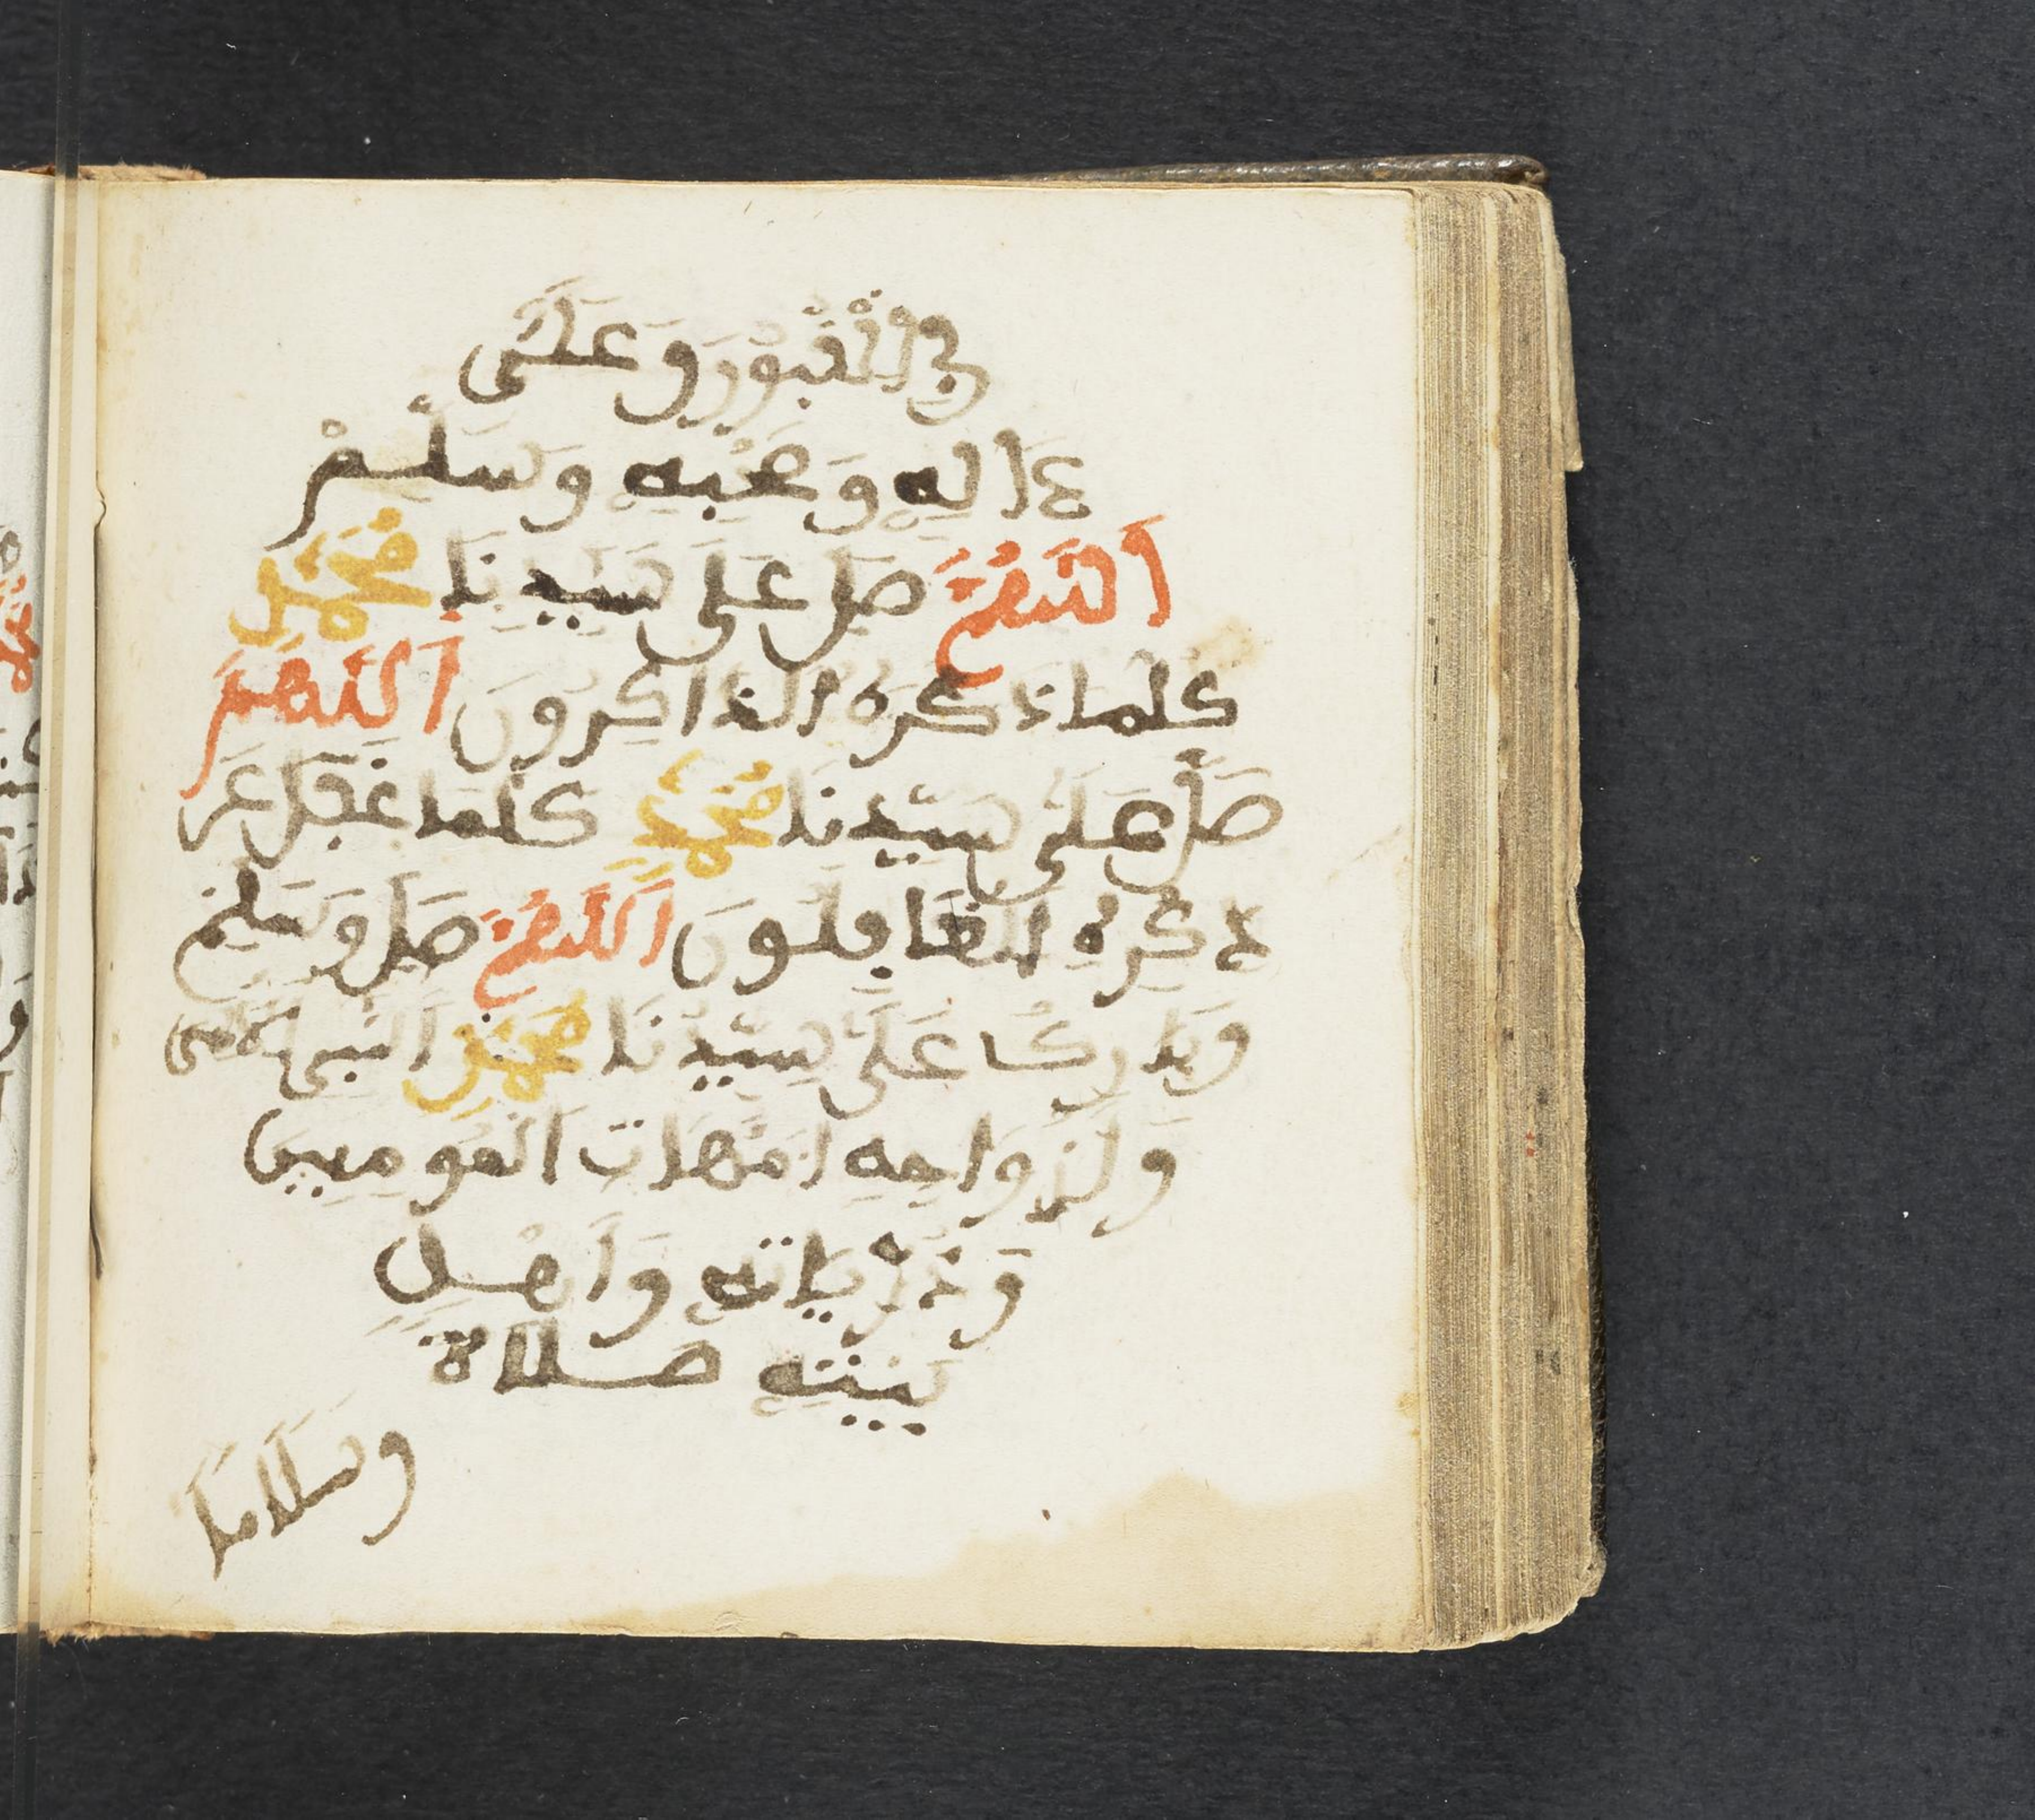 في الْقُبُورِ وَعَلَى
ءَالِهِ وَصَحْبِهِ وَسَلِّمْ
اَللَّهُمَّ صَلِّ عَلَى سَيِّدِنَا مُحَمَّدٍ
كلما ذَكَرَهُ الذاكِرُونَ اَللَّهُمَّ
صَلِّ عَلَى سَيِّدِنَا مُحَمَّدٍ كلما غَفَلَ عَن
ذِكْرِهِ الْغَافِلُونَ اَللَّهُمَّ صَلِّ وَسَلِّمْ
وَبَارِكْ عَلَى سَيِّدِنَا مُحَمَّدٍ النَّبِيِّ الأمي
وَأَزْوَاجِهِ أمَّهَاتِ الْمُومِنِينَ
وَذُرِّيَاتِهِ وَأَهْلِ
بَيْتِهِ صَلَاةً
وسَلَامًا